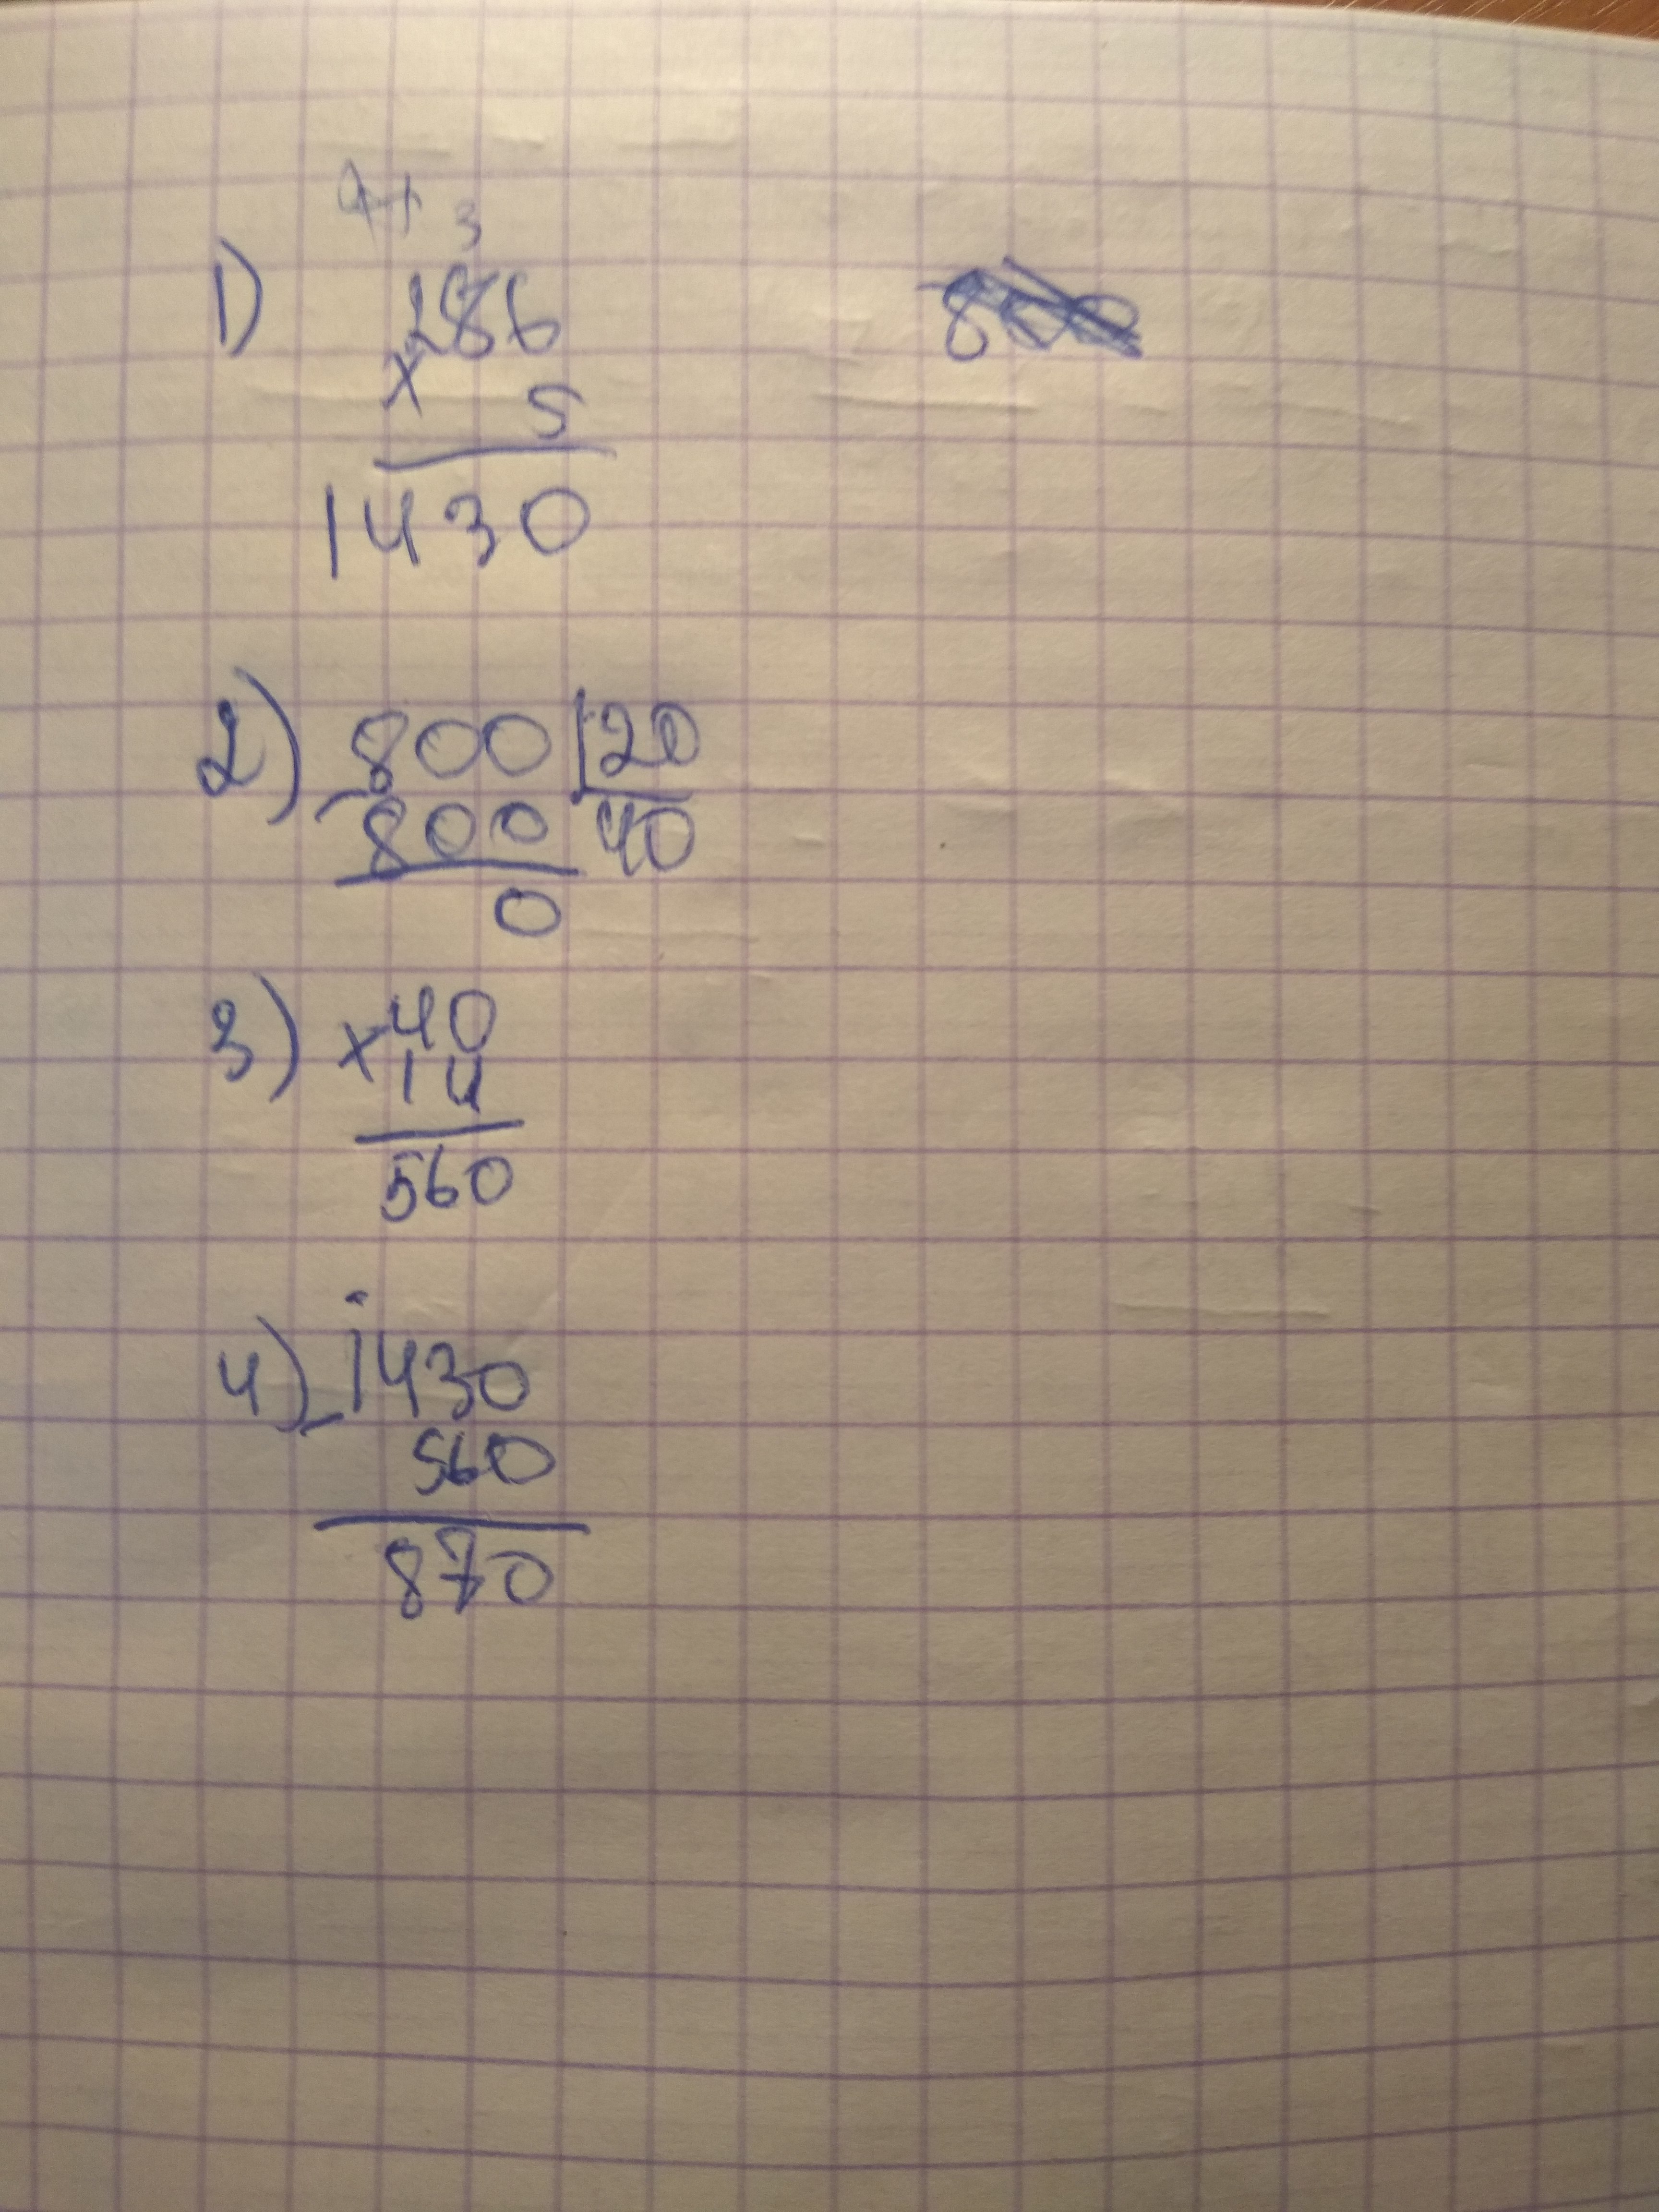 3
1) 286
× 5
1430
2) 800 | 20
- 800 40
0
3) × 40
14
560
4) - 1430
560
870